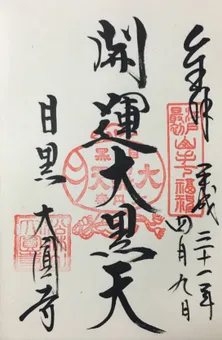 奉拝
平成三十一年四月九日
江戸最初山手七福神
開運大黒天
目黒 大圓寺